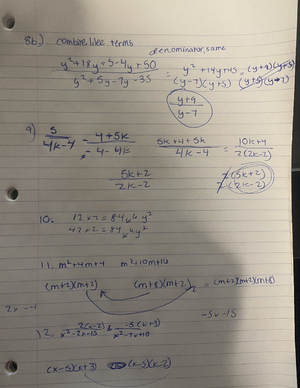 8b.) combine like terms
denominator, same
y²+18y-5-4y+50 / y²+5y-7y-35 = y²+14y+45 / (y-7)(y+5) = (y+9)(y+5) / (y+5)(y-7)
y+9 / y-7
9) 5 / 4k-4 - 4+5k / -4-4k 5k+4+5k / 4k-4 = 10k+4 / 2(2k-2)
5k+2 / 2k-2 2(5k+2) / 2(2k-2)
10. 12x7=84
42x2=84
11. m²+4m+4 m²+10m+16
(m+2)(m+2) (m+8)(m+2) = (m+2)(m+2)(m+8)
-5x-15
12. 2(x-2) / x²-2x-15 & -5(x+3) / x²-7x+10
(x-5)(x+3) (x-5)(x-2)